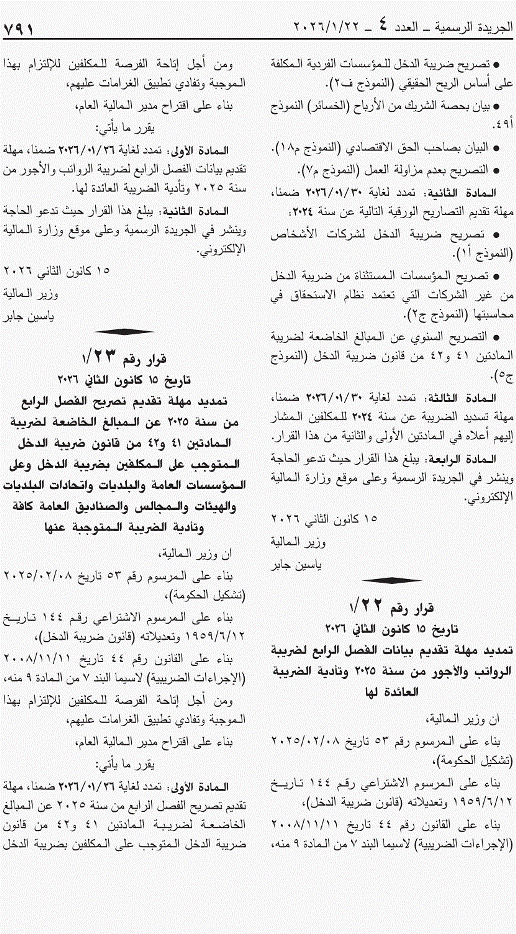 الجريدة الرسمية ــ العدد ٤ ــ ٢٠٢٦/١/٢٢
٧٩١
● تصريح ضريبة الدخل للمؤسسات الفردية المكلفة
على أساس الربح الحقيقي (النموذج ف٢).
● بيان بحصة الشريك من الأرباح (الخسائر) (النموذج
أ٤٩.
● البيان بصاحب الحق الاقتصادي (النموذج م١٨).
● التصريح بعدم مزاولة العمل (النموذج م٧).
المادة الثانية: تمدد لغاية ٢٠٢٦/٠١/٣٠ ضمنا،
مهلة تقديم التصاريح الورقية التالية عن سنة ٢٠٢٤:
● تصريح ضريبة الدخل لشركات الأشخاص
(النموذج أ١).
● تصريح المؤسسات المستثناة من ضريبة الدخل
من غير الشركات التي تعتمد نظام الاستحقاق في
محاسبتها (النموذج ج٢).
● التصريح السنوي عن المبالغ الخاضعة لضريبة
المادتين ٤١ و٤٢ من قانون ضريبة الدخل (النموذج
ج٥).
المادة الثالثة: تمدد لغاية ٢٠٢٦/٠١/٣٠ ضمنا،
مهلة تسديد الضريبة عن سنة ٢٠٢٤ للمكلفين المشار
إليهم أعلاه في المادتين الأولى والثانية من هذا القرار.
المادة الرابعة: يبلغ هذا القرار حيث تدعو الحاجة
وينشر في الجريدة الرسمية وعلى موقع وزارة المالية
الإلكتروني.
١٥ كانون الثاني ٢٠٢٦
وزير المالية
ياسين جابر
قرار رقم ١/٢٢
تاريخ ١٥ كانون الثاني ٢٠٢٦
تمديد مهلة تقديم بيانات الفصل الرابع لضريبة
الرواتب والأجور من سنة ٢٠٢٥ وتأدية الضريبة
العائدة لها
ان وزير المالية،
بناء على المرسوم رقم ٥٣ تاريخ ٢٠٢٥/٠٢/٠٨
(تشكيل الحكومة)،
بناء على المرسوم الاشتراعي رقم ١٤٤ تاريخ
١٩٥٩/٦/١٢ وتعديلاته (قانون ضريبة الدخل)،
بناء على القانون رقم ٤٤ تاريخ ٢٠٠٨/١١/١١
(الإجراءات الضريبية) لاسيما البند ٧ من المادة ٩ منه،
ومن أجل إتاحة الفرصة للمكلفين للإلتزام بهذا
الموجبة وتفادي تطبيق الغرامات عليهم،
بناء على اقتراح مدير المالية العام،
يقرر ما يأتي:
المادة الأولى: تمدد لغاية ٢٠٢٦/٠١/٢٦ ضمنا، مهلة
تقديم بيانات الفصل الرابع لضريبة الرواتب والأجور من
سنة ٢٠٢٥ وتأدية الضريبة العائدة لها.
المادة الثانية: يبلغ هذا القرار حيث تدعو الحاجة
وينشر في الجريدة الرسمية وعلى موقع وزارة المالية
الإلكتروني.
١٥ كانون الثاني ٢٠٢٦
وزير المالية
ياسين جابر
قرار رقم ١/٢٣
تاريخ ١٥ كانون الثاني ٢٠٢٦
تمديد مهلة تقديم تصريح الفصل الرابع
من سنة ٢٠٢٥ عن المبالغ الخاضعة لضريبة
المادتين ٤١ و٤٢ من قانون ضريبة الدخل
المتوجب على المكلفين بضريبة الدخل وعلى
المؤسسات العامة والبلديات واتحادات البلديات
والهيئات والمجالس والصناديق العامة كافة
وتأدية الضريبة المتوجبة عنها
ان وزير المالية،
بناء على المرسوم رقم ٥٣ تاريخ ٢٠٢٥/٠٢/٠٨
(تشكيل الحكومة)،
بناء على المرسوم الاشتراعي رقم ١٤٤ تاريخ
١٩٥٩/٦/١٢ وتعديلاته (قانون ضريبة الدخل)،
بناء على القانون رقم ٤٤ تاريخ ٢٠٠٨/١١/١١
(الإجراءات الضريبية) لاسيما البند ٧ من المادة ٩ منه،
ومن أجل إتاحة الفرصة للمكلفين للإلتزام بهذا
الموجبة وتفادي تطبيق الغرامات عليهم،
بناء على اقتراح مدير المالية العام،
يقرر ما يأتي:
المادة الأولى: تمدد لغاية ٢٠٢٦/٠١/٢٦ ضمنا، مهلة
تقديم تصريح الفصل الرابع من سنة ٢٠٢٥ عن المبالغ
الخاضعة لضريبة المادتين ٤١ و٤٢ من قانون
ضريبة الدخل المتوجب على المكلفين بضريبة الدخل